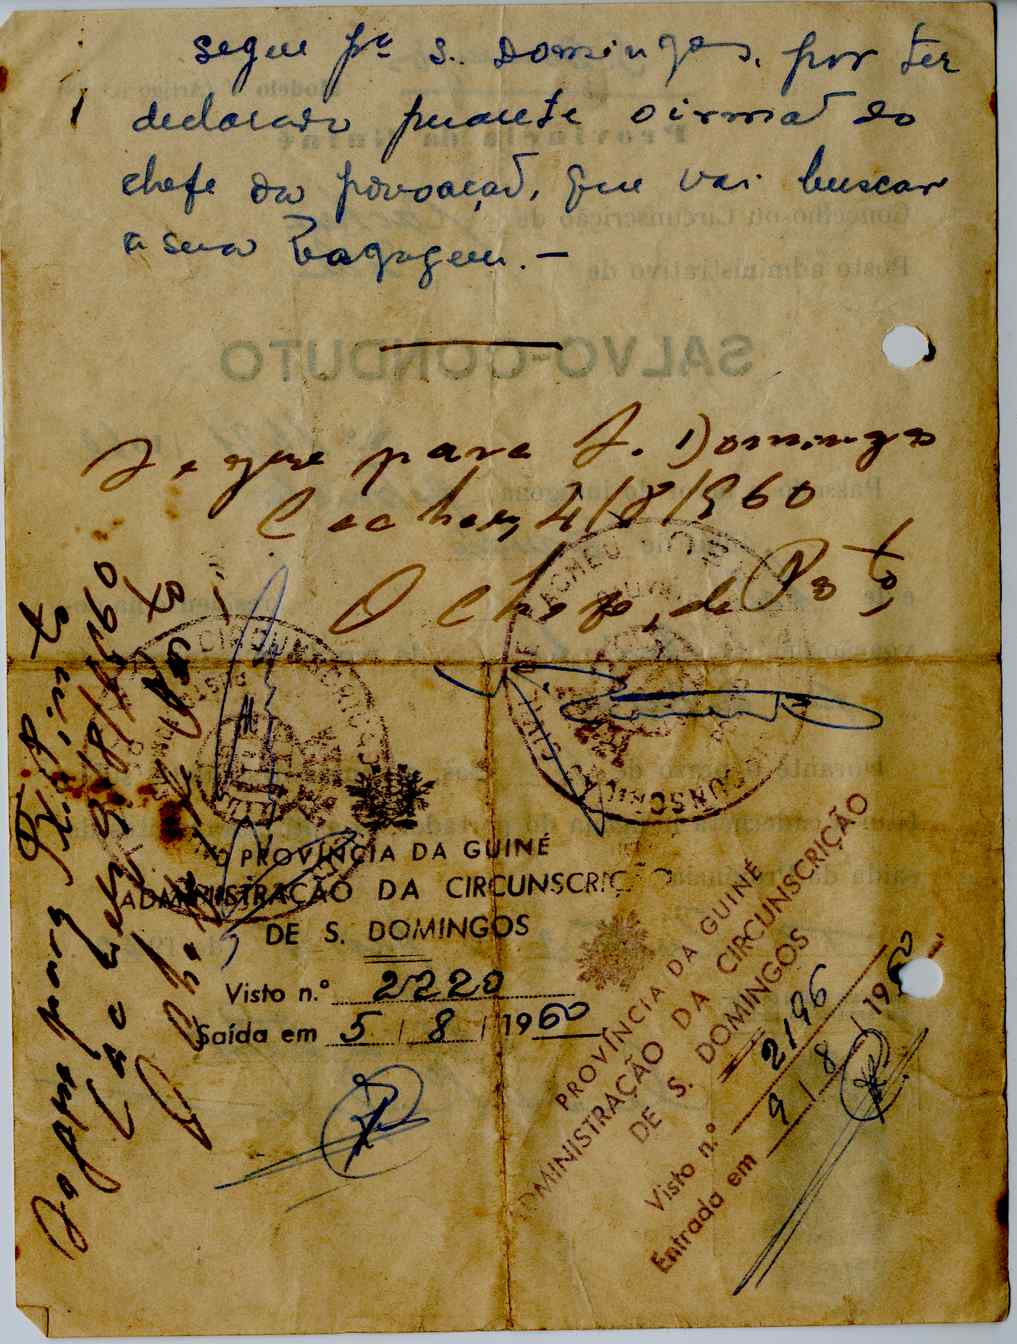 segue pª S. Domingos, por ter
declarado perante o irmaõ do
chefe da povoaçaõ, que vai buscar
a sua bagagem. —
SALVO-CONDUTO
Segue para S. Domingos
Cacheu, 4/8/960
O Chefe de Posto,
CIRCUNSCRIÇÃO
PROVÍNCIA DA GUINÉ
ADMINISTRAÇÃO DA CIRCUNSCRIÇÃO
DE S. DOMINGOS
Visto n.º 2220
Saída em 5 / 8 / 1960
PROVÍNCIA DA GUINÉ
ADMINISTRAÇÃO DA CIRCUNSCRIÇÃO
DE S. DOMINGOS
Visto n.º 2196
Entrada em 9 / 8 / 1960
Segue para
Cacheu, 8/8/1960
O Chefe de Posto